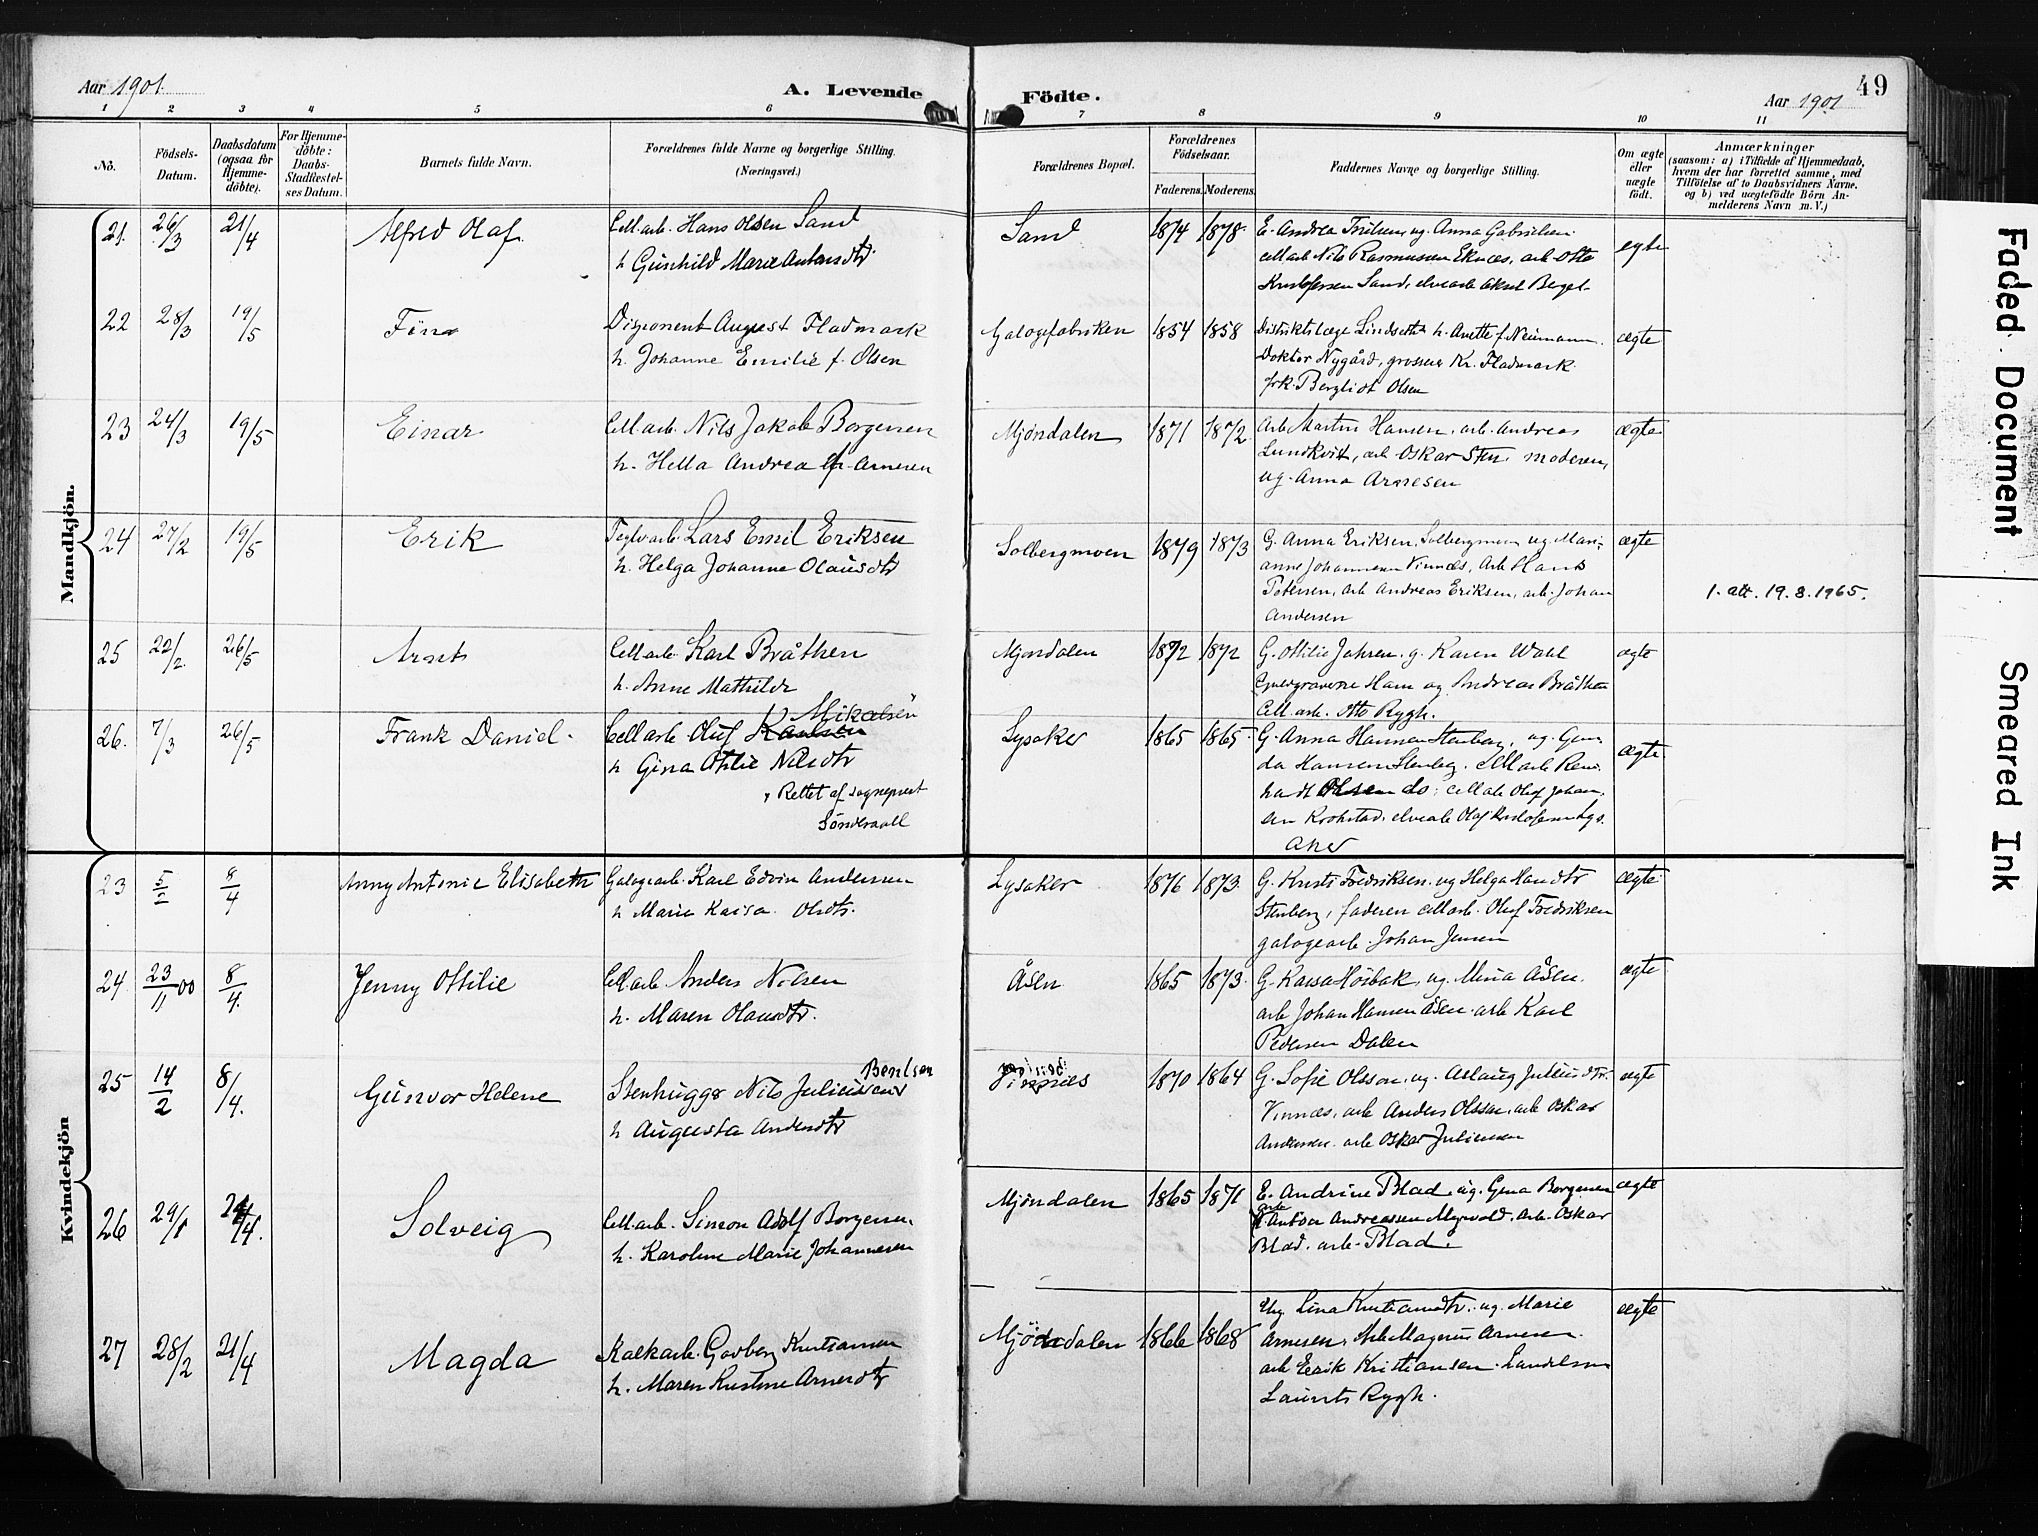 Aar 1901.
A. Levende
Födte.
Aar 1901
49
1 2 3 4 5 6 7 8 9 10 11
No.
Födsels-
Datum.
Daabsdatum
(ogsaa for
Hjemme-
döbte).
For Hjemme-
döbte:
Daabs-
Stadfæstel-
ses Datum.
Barnets fulde Navn.
Forældrenes fulde Navne og borgerlige Stilling.
(Næringsvei.)
Forældrenes Bopæl.
Forældrenes
Födselsaar.
Faderens. Moderens.
Faddernes Navne og borgerlige Stilling.
Om ægte
eller
uægte
födt.
Anmærkninger
(saasom: a) i Tilfælde af Hjemmedaab,
hvem der har forrettet samme, med
Tilföielse af to Daabsvidners Navne.
og b) ved uægtefödte Börn An-
melderens Navn m. V.)
Mandkjön.
21. 26/3 21/4 Alfred Olaf.
Cell.arb. Hans Olsen Sand
h. Gunhild Marie Antonsdtr.
Sand 1874 1878.
E. Andrea Nilsen, ug. Anna Gabrielsen
cell.arb Nils Rasmussen Eknæs, arb Otto
Kristofersen Sand, elvearb Aksel
egte
22 28/3 19/5
Disponent August Fladmark
h. Johanne Emilie f. Olsen
Galogefabriken 1854 1858
Distriktslæge Lindseth h. Anette f. Neumann.
Doktor Nygård, grosserer Kr. Fladmark.
frk. Bergliot Olsen
ægte
23 24/3 19/5 Einar
Cell.arb. Nils Jakob Borgersen
h. Hella Andrea f. Arnesen
Mjøndalen 1871 1872
Arb Martin Hansen, arb. Andreas
Lundkvit, arb Oskar Sten. moderen,
ug. Anna Arnesen
ægte
24 27/2 19/5 Erik
Teglv.arb. Lars Emil Eriksen
h. Helga Johanne Olausdtr
Solbergmoen 1879 1873
G. Anna Eriksen, Solbergmoen ug. Mari-
anne Johannesen Vinnæs, Arb Hans
Petersen, arb Andreas Eriksen, arb. Johan
Andersen
ægte
1. att. 19.8.1965.
25 22/2. 26/5 Arnt
Cell.arb. Karl Bråthen
h. Anne Mathilde
Mjøndalen 1872 1872
G. Ottilie Jahren, g. Karen Wahl
Hans og Andreas Bråthen
Cell.arb. Otto Rygh.
ægte
26. 7/3 26/5 Frank Daniel.
Mikalsen
Cell arb Oluf Karlsen
h Gina Otilie Nilsdtr
Rettet af sogneprest
Sönderaall
Lysaker 1865 1865.
G. Anna Hansen Stenberg, ug. Gun-
da Hansen Stenberg. Cell arb Rein-
hardt Olsen do; cell arb Oluf Johan-
sen Krokstad, elvearb Olaf Kristofersen Lys-
aker
ægte
Kvindekjön
23 5/1 8/4 Anny Antonie Elisabeth
Galogearb. Karl Edvin Andersen
h Marie Kaisa Olsdtr.
Lysaker 1876 1873.
G. Kristi Fredriksen, ug Helga Hansdtr
Stenberg, faderen cell arb. Oluf Fredriksen
galogearb. Johan Jensen
ægte
24. 23/11 00 8/4. Jenny Ottilie
Cell.arb Anders Nilsen
h. Maren Olausdtr.
Åsen 1865 1873.
G. Kaisa Höibak, ug. Mina Åsen.
arb Johan Hansen Åsen. arb Karl
Pedersen Dalen
ægte
25 14/2 8/4. Gunvor Helene
Bentsen
Stenhugger Nils Juliussen
h Augusta Andersdtr
1870 1864
G. Sofie Olsson, ug. Aslaug Juliusdtr.
Vinnæs, arb Anders Olsson, arb Oskar
Andersen. arb Oskar Juliussen
ægte
26 29/1 24/4. Solveig
Cell.arb. Simon Adolf Borgersen.
h. Karoline Marie Johannesen
Mjøndalen 1865 1871
E. Andrine Blad, ug. Gina Borgersen
arb Anton Andreassen Myrvold, Arb. Oskar
Blad. arb. Blad.
ægte
27 28/2 21/4 Magda
Kalkarb. Godberg Kristiansen
h. Maren Kristine Arnesdtr
Mjöndalen 1866 1868
Ug Lina Kristiansdtr. ug. Marie
Arnesen, Arb Magnus Arnesen.
arb Eerik Kristiansen.
Laurits Rygh.
ægte
Faded Document
Smeared Ink